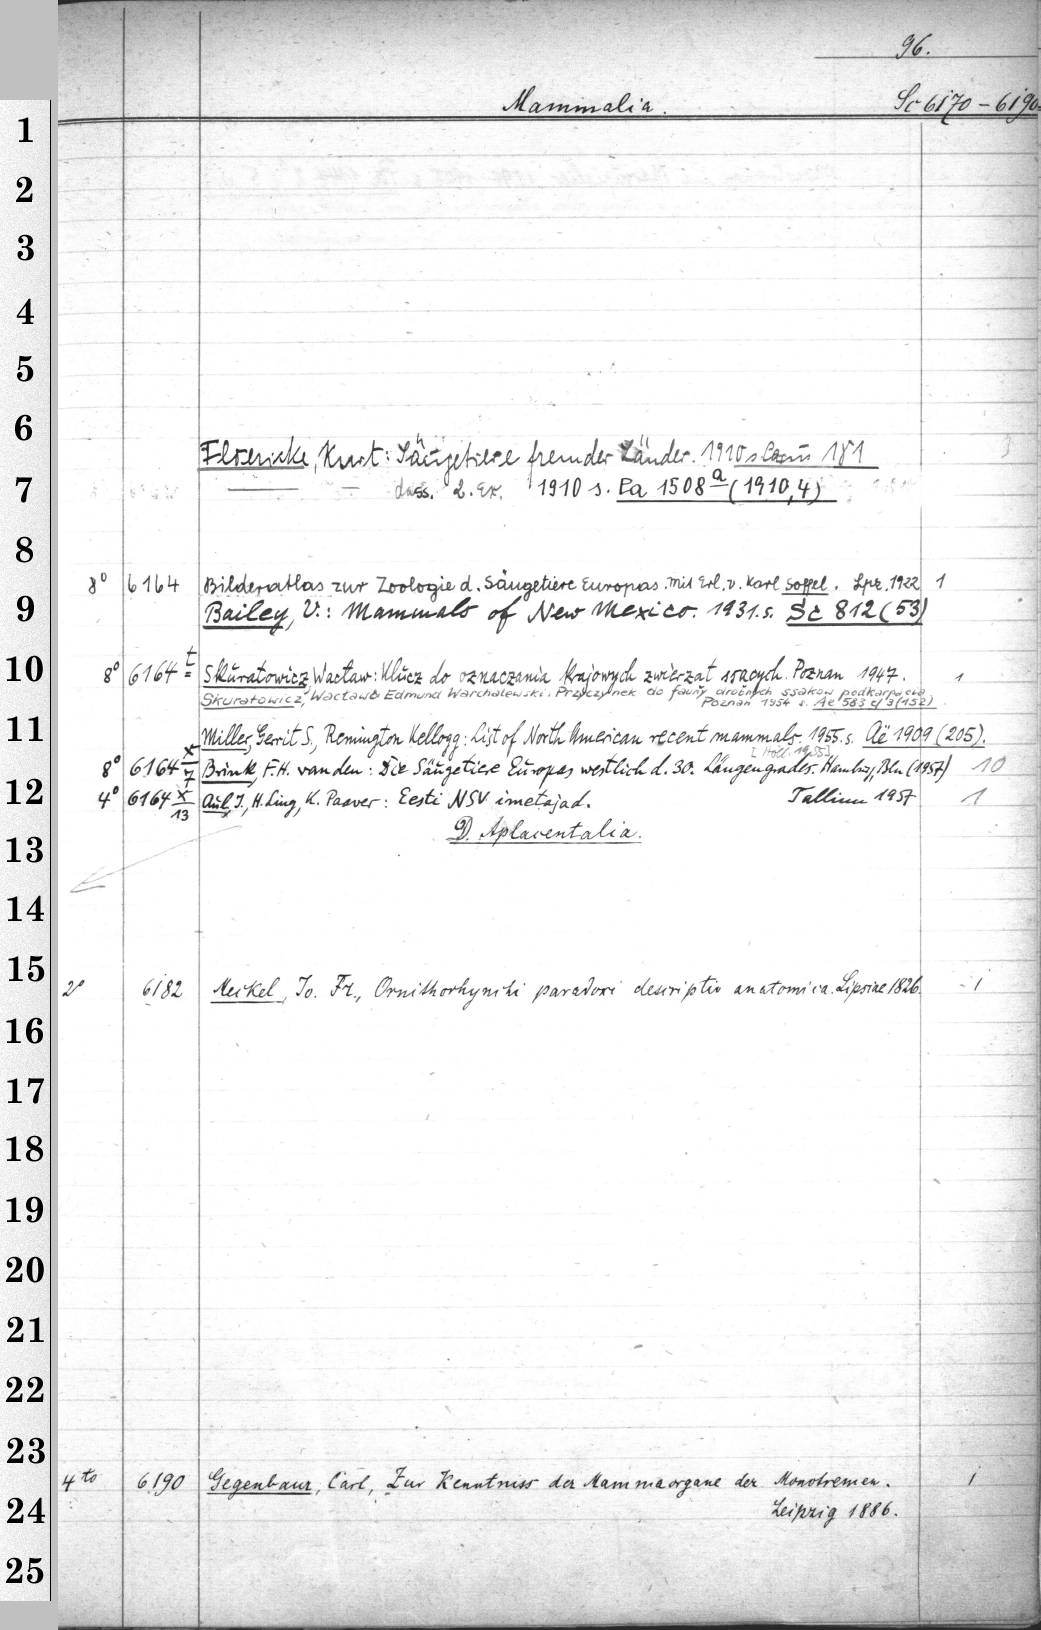 96.
Mammalia. Sc 6170 – 6190
1
2
3
4
5
6
Floericke, Kurt: Säugetiere fremder Länder. 1910 s. 181
7
dass. 2. Ex. 1910 s. Pa 1508 a (1910,4)
8
8° 6164 Bilderatlas zur Zoologie d. Säugetiere Europas. Mit Erl. v. Karl Soffel. Lpz. 1922 1
9
Bailey, V.: Mammals of New Mexico. 1931. s. Sc 812 (53)
10
8° 6164 t Skuratowicz, Wacław: Klucz do oznaczania krajowych zwierząt ssących. Poznań 1947. 1
Skuratowicz, Wacław & Edmund Warchalewski: Przyczynek do fauny drobnych ssaków podkarpacka
Poznań 1954 s. Ae 583 c/3 (152)
11
Miller, Gerrit S., Remington Kellogg: List of North American recent mammals. 1955. s. Aë 1909 (205).
[Holl. 1955]
8° 6164 x/7 Brink, F.H. van den: Die Säugetiere Europas westlich d. 30. Längengrades. Hamburg, Bln. (1957) 10
12
4° 6164 x/13 Aul, J., H. Ling, K. Paaver: Eesti NSV imetajad. Tallinn 1957 1
D. Aplacentalia.
13
14
15
2° 6182 Meckel, Jo. Fr., Ornithorhynchi paradoxi descriptio anatomica. Lipsiae 1826. 1
16
17
18
19
20
21
22
23
4to 6190 Gegenbaur, Carl, Zur Kenntniss der Mammaorgane der Monotremen. 1
24
Leipzig 1886.
25